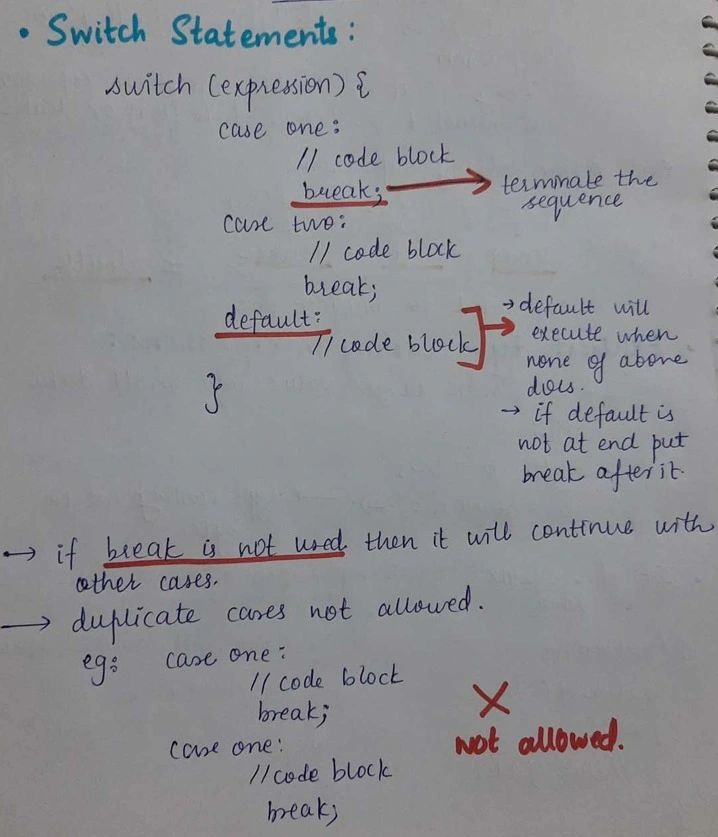 • Switch Statements:
switch (expression) {
case one:
// code block
break; → terminate the
sequence
case two:
// code block
break;
default:
// code block
}
→ default will
execute when
none of above
does.
→ if default is
not at end put
break after it.
→ if break is not used then it will continue with
other cases.
→ duplicate cases not allowed.
eg: case one:
// code block
break;
case one:
// code block
break;
X
not allowed.